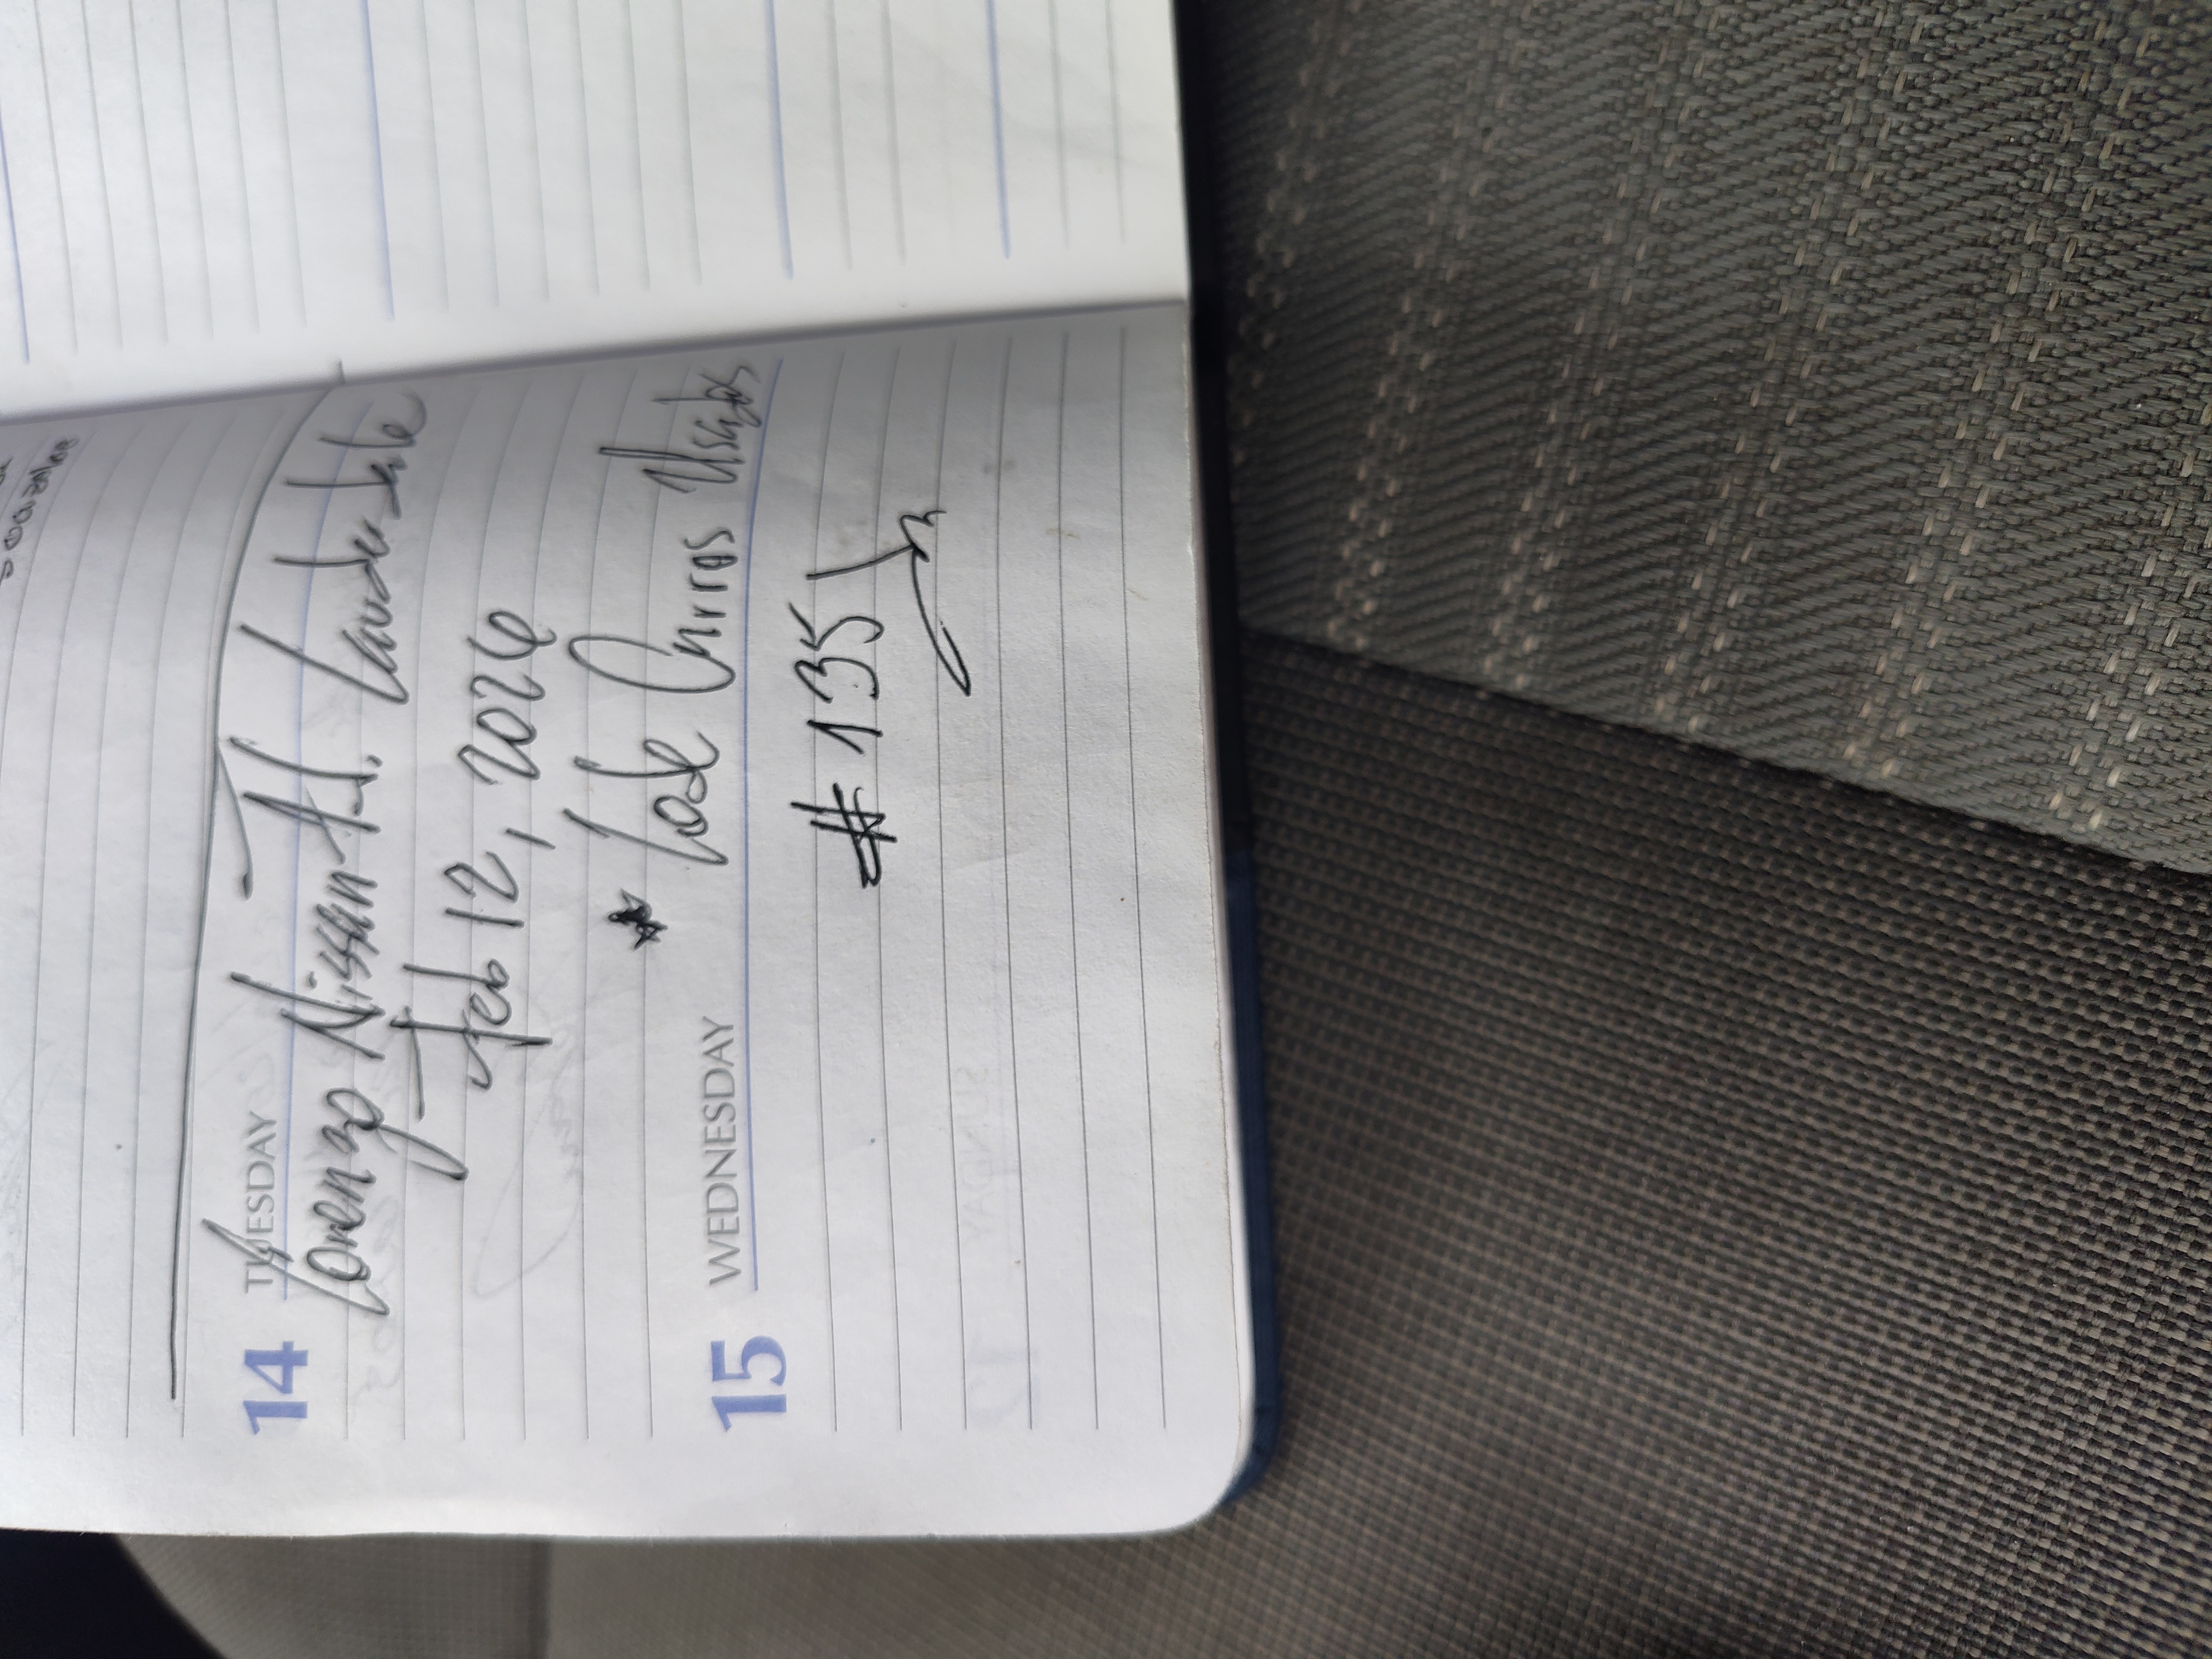 14 TUESDAY
Lorenzo Nissan Ft. Lauderdale
Feb 12, 2026
* Lote Carros Usados
15 WEDNESDAY
# 135